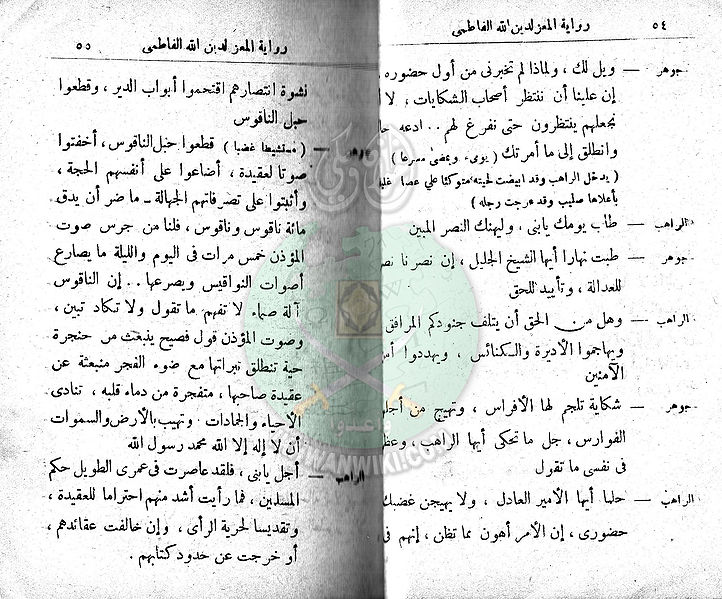 ٥٤
رواية المعز لدين الله الفاطمى
جوهر — ويل لك ، ولماذا لم تخبرنى من أول حضوره
إن علينا أن ننتظر أصحاب الشكايات ، لا
نجعلهم ينتظرون حتى نفرغ لهم .. ادعه
وانطلق إلى ما أمرتك ( يومىء ويمضى مسرعا )
( يدخل الراهب وقد ابيضت لحيته متوكئا على عصا
بأعلاها صليب وقد عرجت رجله )
الراهب — طاب يومك يابنى ، وليهنك النصر المبين
جوهر — طبت نهارا أيها الشيخ الجليل ، إن نصرنا
للعدالة ، وتأييد للحق
الراهب — وهل من الحق أن يتلف جنودكم المرافق
ويهاجموا الأديرة والكنائس ، ويهددوا
الآمنين
جوهر — شكاية تلجم لها الأفراس ، وتهيج من
الفوارس ، جل ما تحكى أيها الراهب ،
فى نفسى ما تقول
الراهب — حلما أيها الأمير العادل ، ولا يهيجن غضبك
حضورى ، إن الأمر أهون مما تظن ، إنهم فى
رواية المعز لدين الله الفاطمى
٥٥
نشوة انتصارهم اقتحموا أبواب الدير ، وقطعوا
حبل الناقوس
جوهر — ( مستشيطا غضبا ) قطعوا حبل الناقوس ، أخفتوا
صوتا لعقيدة ، أضاعوا على أنفسهم الحجة ،
وأثبتوا على تصرفاتهم الجهالة ــ ما ضر أن يدق
مائة ناقوس وناقوس ، فلنا من جرس صوت
المؤذن خمس مرات فى اليوم والليلة ما يصارع
أصوات النواقيس ويصرعها .. إن الناقوس
آلة صماء لا تفهم ما تقول ولا تكاد تبين ،
وصوت المؤذن قول فصيح ينبعث من حنجرة
حية تنطلق نبراتها مع ضوء الفجر منبعثة عن
عقيدة صاحبها ، متفجرة من دماء قلبه ، تنادى
الأحياء والجمادات وتهيب بالأرض والسموات
أن لا إله إلا الله محمد رسول الله
الراهب — أجل يابنى ، فلقد عاصرت فى عمرى الطويل حكم
المسلمين ، فما رأيت أشد منهم احتراما للعقيدة ،
وتقديسا لحرية الرأى ، وإن خالفت عقائدهم ،
أو خرجت عن حدود كتابهم .